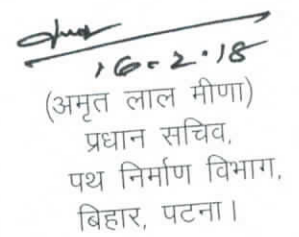 16.2.18
(अमृत लाल मीणा)
प्रधान सचिव,
पथ निर्माण विभाग,
बिहार, पटना।